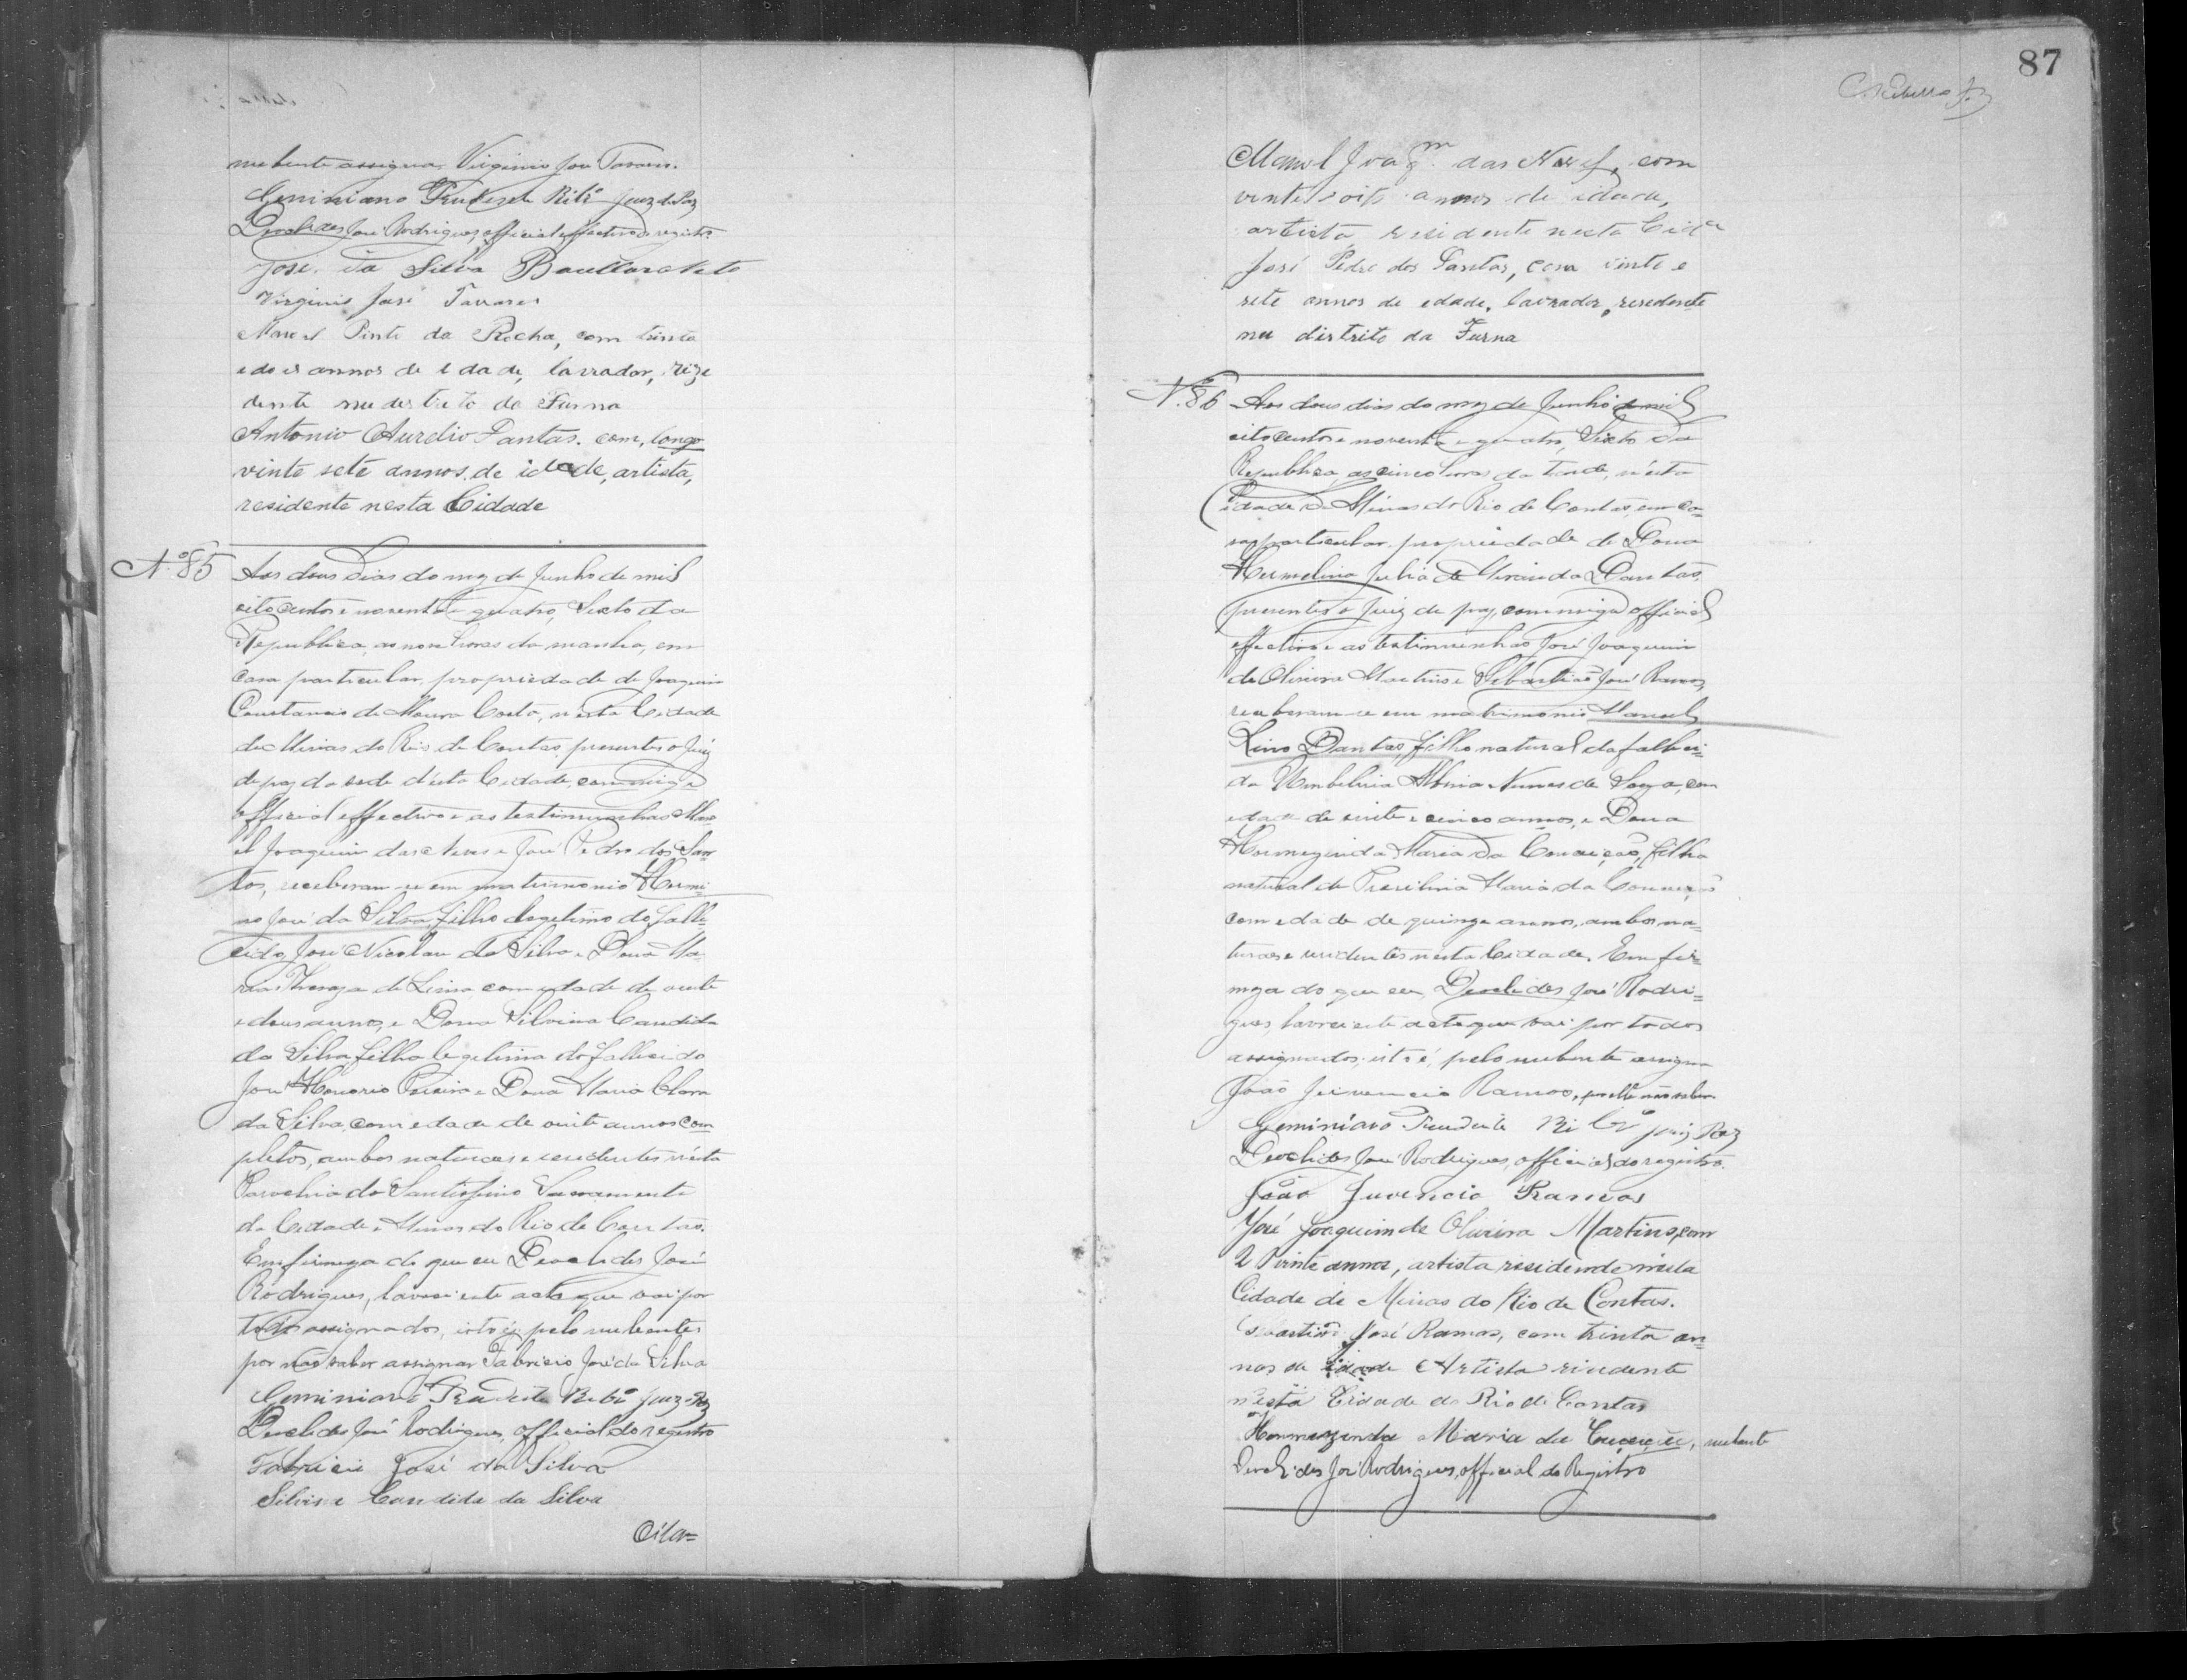 nubente assigna Virginio José Tavares.
Geminiano Prudente Ribº Juiz de Paz
Deoclides José Rodrigues, official effectivo do registro
José da Silva
Virginio José Tavares
Manoel Pinto da Rocha, com trinta
e dois annos de edade, lavrador, rize
dente nu destrito da Furna
Antonio Aurelio Dantas. com,
vinte sete annos de idade, artista,
residente nesta Cidade
Nº 85 Aos dous dias do mez de Junho de mil
oitocentos e noventa e quatro, Sexto da
Republica, as nove horas da manhã, em
casa particular, propriedade de Joaquim
Constancio de Moura Costa, nesta Cidade
de Minas do Rio de Contas, presentes o Juiz
de paz da sede d'esta Cidade, commigo
official effectivo e as testimunhas Mano
el Joaquim das Neves e José Pedro dos San
tos, receberam-se em matrimonio Hermi-
no José da Silva, filho legitimo do falle-
cido José Nicolau da Silva e Dona Ma-
ria Thereza de Lima, com edade de vinte
e dous annos, e Dona Silvina Candida
da Silva filha legitima do fallecido
José Honorio Pereira e Dona Maria Clara
da Silva, com edade de vinte annos com
pletos, ambos naturaes e residentes n'esta
Parochia do Santissimo Sacramento
da Cidade e Minas do Rio de Contas.
Em firmeza do que eu Deoclides José
Rodrigues, lavrei este acto que vai por
todos assignados, isto é, pelo nubente
por não saber assignar Fabricio José da Silva
Geminiano Prudente Ribº Juiz de Paz
Deoclides José Rodrigues, official do registro
Fabricio José da Silva
Silvina Candida da Silva
87
Manoel Joaqm das Neves, com
vinte e oito annos de idade,
artista, residente nesta Cidª
José Pedro dos Santos, com vinte e
sete annos de edade, lavrador, residente
nu distrito da Furna
Nº 86 Aos dous dias do mez de Junho de mil
oitocentos e noventa e quatro, Sexto da
Republica, as cinco horas da tarde, n'esta
Cidade de Minas do Rio de Contas, em ca-
sa particular, propriedade de Dona
Hermelina Julia de Miranda Dantas,
presentes o Juiz de paz, commigo official
effectivo e as testimunhas José Joaquim
de Oliveira Martins e Sebastião José Ramos,
receberam-se em matrimonio Manoel
Lino Dantas, filho natural da falleci-
da Umbelina Nunes de Souza, com
edade de vinte e cinco annos, e Dona
Hormezinda Maria da Conceição, filha
natural de Maria da Conceição
com edade de quinze annos, ambos na-
turaes e residentes n'esta Cidade. Em fir-
meza do que eu, Deoclides José Rodri-
gues, lavrei este acto que vai por todos
assignados, isto é, pelo nubente assigna
João Juvencio Ramos, por elle não saber.
Geminiano Prudente Ribrº juiz Paz
Deoclides José Rodrigues, official do registro.
João Juvencio Ramos
José Joaquim de Oliveira Martins, com
vinte annos, artista residende nesta
Cidade de Minas do Rio de Contas.
Sebastião José Ramos, com trinta an-
nos de idade Artista rindente
n'esta Cidade do Rio de Contas
Hormezinda Maria da Conceição, nubente
Deoclides José Rodrigues, official do Registro